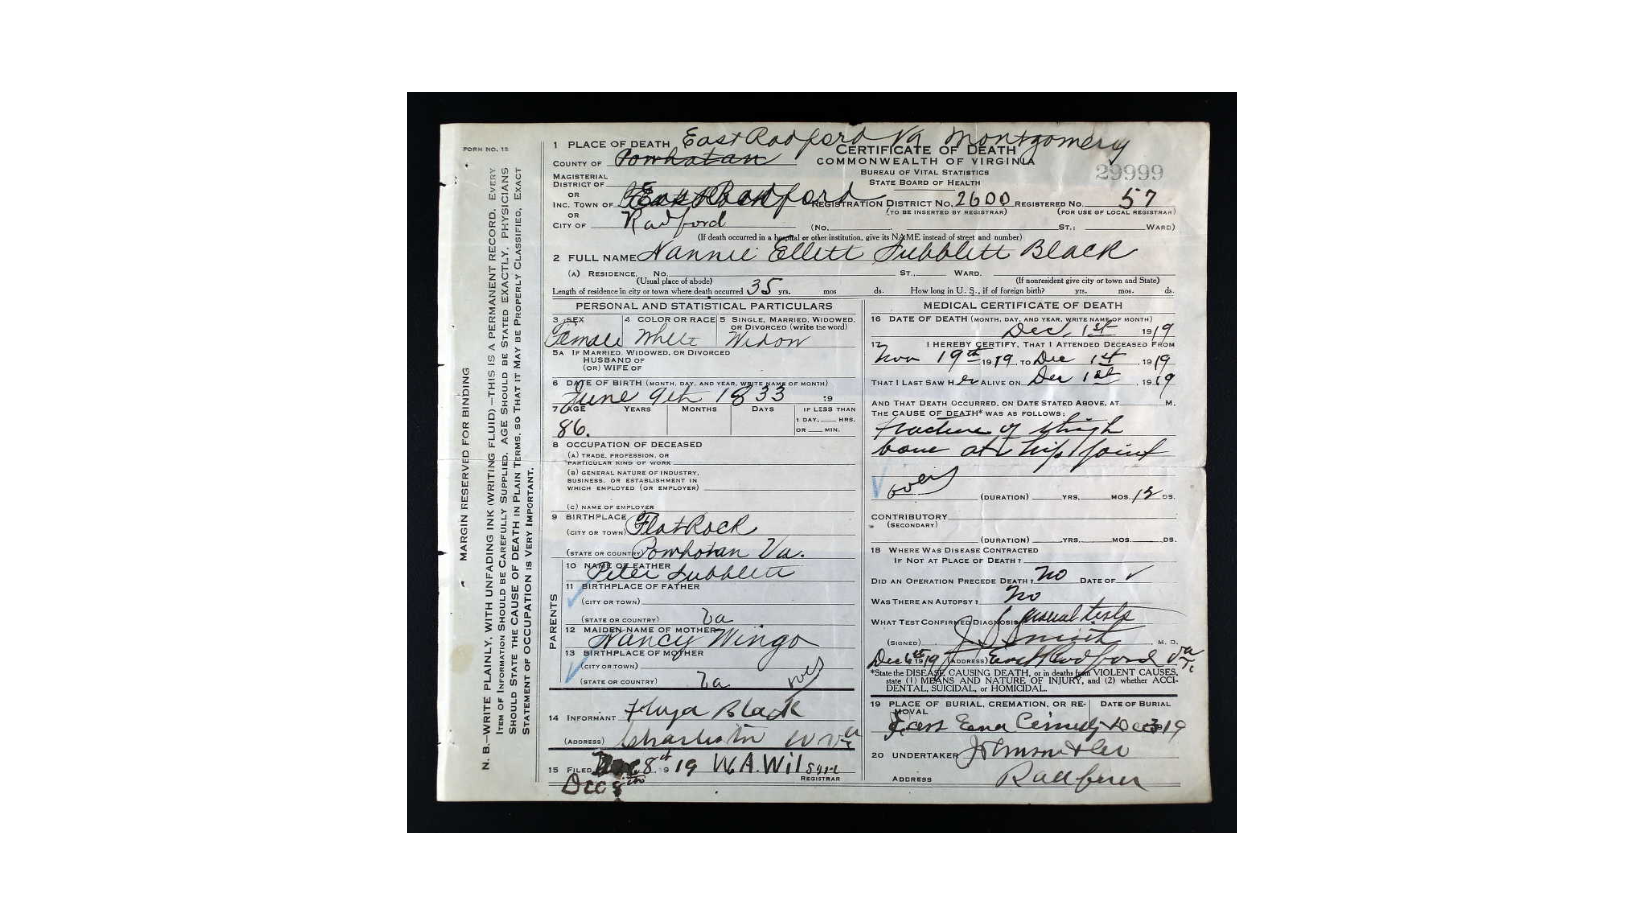 FORM NO. 12
MARGIN RESERVED FOR BINDING
N. B.—WRITE PLAINLY, WITH UNFADING INK (WRITING FLUID)—THIS IS A PERMANENT RECORD. EVERY
ITEM OF INFORMATION SHOULD BE CAREFULLY SUPPLIED. AGE SHOULD BE STATED EXACTLY. PHYSICIANS
SHOULD STATE THE CAUSE OF DEATH IN PLAIN TERMS, SO THAT IT MAY BE PROPERLY CLASSIFIED. EXACT
STATEMENT OF OCCUPATION IS VERY IMPORTANT.
1 PLACE OF DEATH East Radford Va Montgomery
COUNTY OF Powhatan
CERTIFICATE OF DEATH
COMMONWEALTH OF VIRGINIA
BUREAU OF VITAL STATISTICS
STATE BOARD OF HEALTH
29999
MAGISTERIAL
DISTRICT OF
OR
INC. TOWN OF East Radford REGISTRATION DISTRICT NO. 2600 REGISTERED NO. 57
(TO BE INSERTED BY REGISTRAR) (FOR USE OF LOCAL REGISTRAR)
OR
CITY OF Radford (NO. ST.; WARD)
(If death occurred in a hospital or other institution, give its NAME instead of street and number)
2 FULL NAME Nannie Ellett Tubblett Black
(A) RESIDENCE, NO. ST., WARD.
(Usual place of abode) (If nonresident give city or town and State)
Length of residence in city or town where death occurred 35 yrs. mos ds. How long in U. S., if of foreign birth? yrs. mos. ds.
PERSONAL AND STATISTICAL PARTICULARS
3 SEX 4 COLOR OR RACE 5 SINGLE, MARRIED, WIDOWED,
OR DIVORCED (write the word)
Female White Widow
5A IF MARRIED, WIDOWED, OR DIVORCED
HUSBAND OF
(OR) WIFE OF
6 DATE OF BIRTH (MONTH, DAY, AND YEAR, WRITE NAME OF MONTH)
June 9th 1833 19
7 AGE YEARS MONTHS DAYS IF LESS THAN
1 DAY, HRS.
OR MIN.
86.
8 OCCUPATION OF DECEASED
(A) TRADE, PROFESSION, OR
PARTICULAR KIND OF WORK
(B) GENERAL NATURE OF INDUSTRY,
BUSINESS, OR ESTABLISHMENT IN
WHICH EMPLOYED (OR EMPLOYER)
(C) NAME OF EMPLOYER
9 BIRTHPLACE
(CITY OR TOWN) Flat Rock
(STATE OR COUNTRY) Powhatan Va.
PARENTS
10 NAME OF FATHER Peter Tubblett
11 BIRTHPLACE OF FATHER
(CITY OR TOWN)
(STATE OR COUNTRY) Va
12 MAIDEN NAME OF MOTHER Nancy Wingo
13 BIRTHPLACE OF MOTHER
(CITY OR TOWN)
(STATE OR COUNTRY) Va over
14 INFORMANT Black
(ADDRESS) Charleston W Va
15 FILED Dec 8th 19 19 W.A. Wilson
REGISTRAR
Dec 8th
MEDICAL CERTIFICATE OF DEATH
16 DATE OF DEATH (MONTH, DAY, AND YEAR, WRITE NAME OF MONTH)
Dec, 1st 1919
17 I HEREBY CERTIFY, THAT I ATTENDED DECEASED FROM
Nov 19th 1919, TO Dec 1st 1919
THAT I LAST SAW H er ALIVE ON Dec 1st, 1919
AND THAT DEATH OCCURRED, ON DATE STATED ABOVE, AT M.
THE CAUSE OF DEATH* WAS AS FOLLOWS:
fracture of thigh
bone at hip joint
over
(DURATION) YRS. MOS. 12 DS.
CONTRIBUTORY
(SECONDARY)
(DURATION) YRS. MOS. DS.
18 WHERE WAS DISEASE CONTRACTED
IF NOT AT PLACE OF DEATH?
DID AN OPERATION PRECEDE DEATH? No DATE OF
WAS THERE AN AUTOPSY? No
WHAT TEST CONFIRMED DIAGNOSIS? usual tests
(SIGNED) J. S. Smith M. D.
Dec 6th 1919 (ADDRESS) East Radford Va
*State the DISEASE CAUSING DEATH, or in deaths from VIOLENT CAUSES,
state (1) MEANS AND NATURE OF INJURY, and (2) whether ACCI-
DENTAL, SUICIDAL, or HOMICIDAL.
19 PLACE OF BURIAL, CREMATION, OR RE-
MOVAL DATE OF BURIAL
East End Dec 3 19
20 UNDERTAKER
ADDRESS Radford